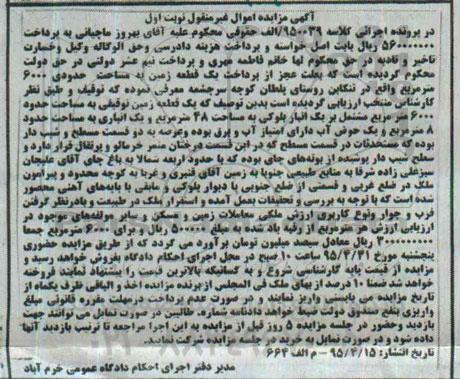 آگهی مزایده اموال غیرمنقول نوبت اول
در پرونده اجرائی کلاسه ۹۵۰۰۳۹/الف حقوقی محکوم علیه آقای بهروز ماچیانی به پرداخت
۵۶۰۰۰۰۰۰۰ ریال بابت اصل خواسته و پرداخت هزینه دادرسی وحق الوکاله وکیل وخسارت
تاخیر و تادیه در حق محکوم لها خانم فاطمه مهری و پرداخت نیم عشر دولتی در حق دولت
محکوم گردیده است که بعلت عجز از پرداخت یک قطعه زمین به مساحت حدودی ۶۰۰۰
مترمربع واقع در تنکابن روستای پلطان کوچه سرچشمه معرفی نموده که توقیف و طبق نظر
کارشناس منتخب ارزیابی گردیده است بدین توصیف که یک قطعه زمین توقیفی به مساحت حدود
۶۰۰۰ متر مربع مشتمل بر یک انبار بلوکی به مساحت ۴۸ مترمربع و یک انباری به مساحت حدود
۸ مترمربع و یک حوض آب دارای امتیاز آب و برق بوده وعرصه به دو قسمت مسطح و شیب دار
بوده که مستحدثات در قسمت مسطح که در این قسمت درختان مثمر خرمالو و پرتقال قرار دارد و
سطح شیب دار پوشیده از بوته‌های چای بوده که با حدود اربعه شمالا به باغ چای آقای علیجان
سبزعلی زاده شرقا به منابع طبیعی جنوبا به زمین آقای قنبری و غربا به کوچه محدود و پیرامون
ملک در ضلع غربی و قسمتی از ضلع جنوبی با دیوار بلوکی و مابقی با پایه‌های آهنی محصور
شده است که با توجه به بررسی و تحقیقات بعمل آمده و استقرار ملک در طبیعت و بادرنظر گرفتن
قرب و جوار ونوع کاربری ارزش ملکی معاملات زمین و مسکن و سایر مولفه‌های موجود در
ارزیابی ارزش هر مترمربع از رقبه یاد شده به مبلغ ۵۰۰۰۰۰ ریال و برای ۶۰۰۰ مترمربع جمعا
۳۰۰۰۰۰۰۰۰۰ ریال معادل سیصد میلیون تومان برآورد می گردد که از طریق مزایده حضوری
پنجشنبه مورخ ۹۵/۴/۳۱ ساعت ۱۰ صبح در محل اجرای احکام دادگاه بفروش خواهد رسید و
مزایده از قیمت پایه کارشناسی شروع و به کسانیکه بالاترین قیمت را پیشنهاد نمایند فروخته
خواهد شد ضمنا ۱۰ درصد از بهای ملک فی المجلس از برنده مزایده اخذ و الباقی ظرف یکماه از
تاریخ مزایده می بایستی واریز نمایند و در صورت عدم پرداخت درمهلت مقرره قانونی مبلغ
واریزی بنفع صندوق دولت ضبط خواهد دادنامه شماره. طالبین در صورت تمایل می توانند جهت
بازدید وحضور در جلسه مزایده ۵ روز قبل از مزایده به این اجرا مراجعه تا ترتیب بازدید آنها
داده شود و در صورت تمایل به خرید در جلسه مزایده شرکت نمایند.
تاریخ انتشار: ۹۵/۴/۱۵ - م الف ۶۶۴
مدیر دفتر اجرای احکام دادگاه عمومی خرم آباد